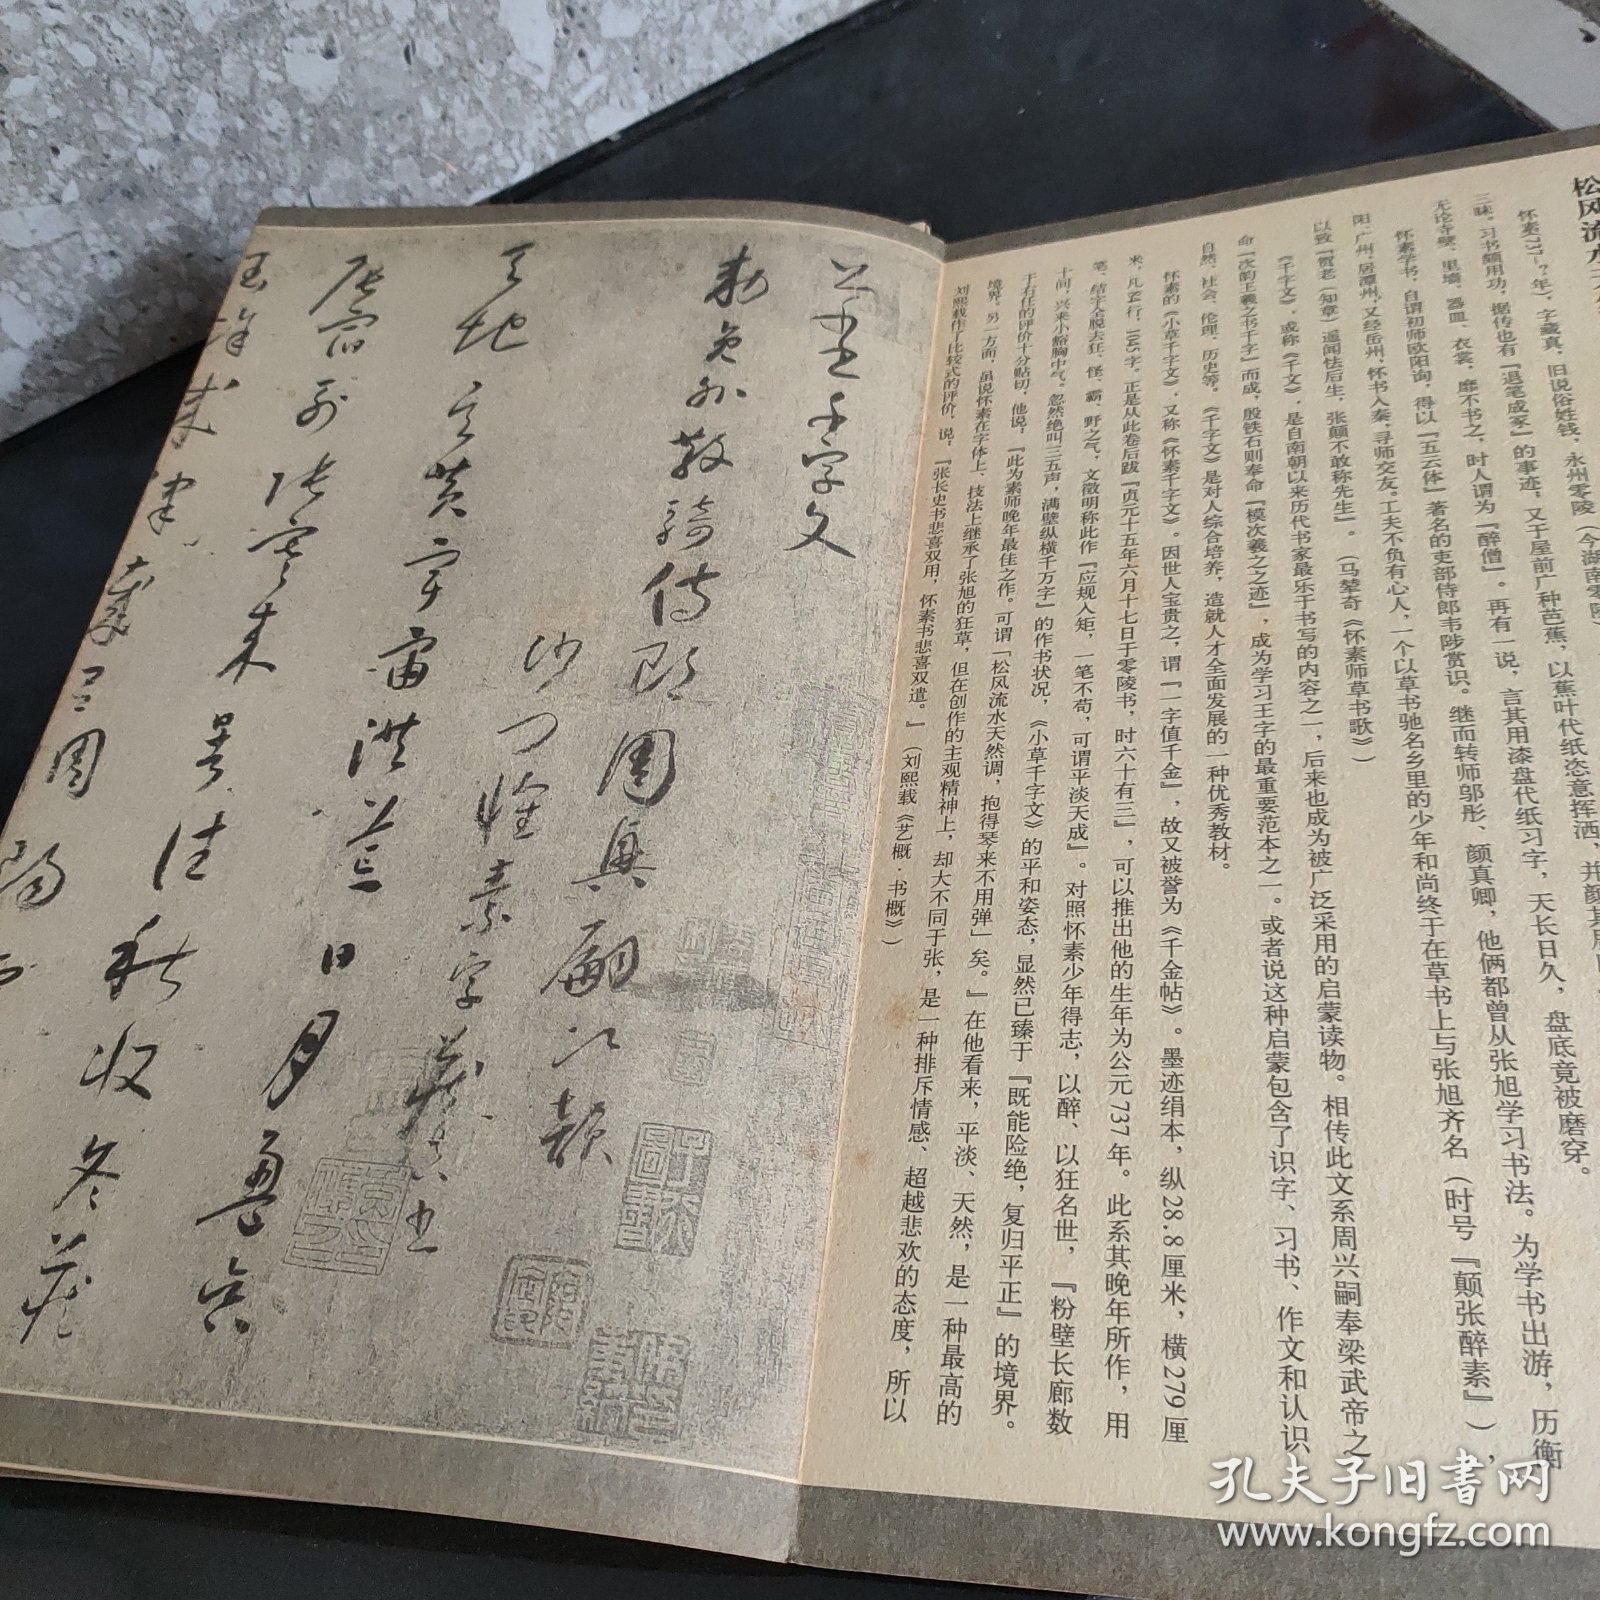 松风流水天
怀素(737—?年)，字藏真，旧说俗姓钱，永州零陵（今湖南零陵）
三昧。习书颇用功，据传也有『退笔成冢』的事迹，又于屋前广种芭蕉，以蕉叶代纸恣意挥洒，并颜其居
无论寺壁、里墙、器皿、衣裳，靡不书之，时人谓为『醉僧』。再有一说，言其用漆盘代纸习字，天长日久，盘底竟被磨穿。
怀素学书，自谓初师欧阳询，得以『五云体』著名的吏部侍郎韦陟赏识。继而转师邬彤、颜真卿，他俩都曾从张旭学习书法。为学书出游，历衡
阳、广州，居潭州，又经岳州，怀书入秦，寻师交友。工夫不负有心人，一个以草书驰名乡里的少年和尚终于在草书上与张旭齐名（时号『颠张醉素』），
以致『贺老（知章）遥闻怯后生，张颠不敢称先生』。（马辇奇《怀素师草书歌》）
《千字文》，或称《千文》，是自南朝以来历代书家最乐于书写的内容之一，后来也成为被广泛采用的启蒙读物。相传此文系周兴嗣奉梁武帝之
命『次韵王羲之书千字』而成，殷铁石则奉命『模次羲之之迹』，成为学习王字的最重要范本之一。或者说这种启蒙包含了识字、习书、作文和认识
自然、社会、伦理、历史等。《千字文》是对人综合培养，造就人才全面发展的一种优秀教材。
怀素的《小草千字文》，又称《怀素千字文》。因世人宝贵之，谓『一字值千金』，故又被誉为《千金帖》。墨迹绢本，纵28.8厘米，横279厘
米，凡84行，1045字。正是从此卷后跋『贞元十五年六月十七日于零陵书，时六十有三』，可以推出他的生年为公元737年。此系其晚年所作，用
笔、结字全脱去狂、怪、霸、野之气，文徵明称此作『应规入矩，一笔不苟，可谓平淡天成』。对照怀素少年得志，以醉、以狂名世，『粉壁长廊数
十间，兴来小豁胸中气。忽然绝叫三五声，满壁纵横千万字』的作书状况，《小草千字文》的平和姿态，显然已臻于『既能险绝，复归平正』的境界。
于右任的评价十分贴切，他说，『此为素师晚年最佳之作。可谓「松风流水天然调，抱得琴来不用弹」矣。』在他看来，平淡、天然，是一种最高的
境界。另一方面，虽说怀素在字体上、技法上继承了张旭的狂草，但在创作的主观精神上，却大不同于张，是一种排斥情感、超越悲欢的态度，所以
刘熙载作了比较式的评价，说，『张长史书悲喜双用，怀素书悲喜双遣。』（刘熙载《艺概·书概》）
千字文
敕员外散骑侍郎周兴嗣次韵
沙门怀素字藏真书
天地玄黄宇宙洪荒日月盈昃
辰宿列张寒来暑往秋收冬藏
孔夫子旧书网
www.kongfz.com